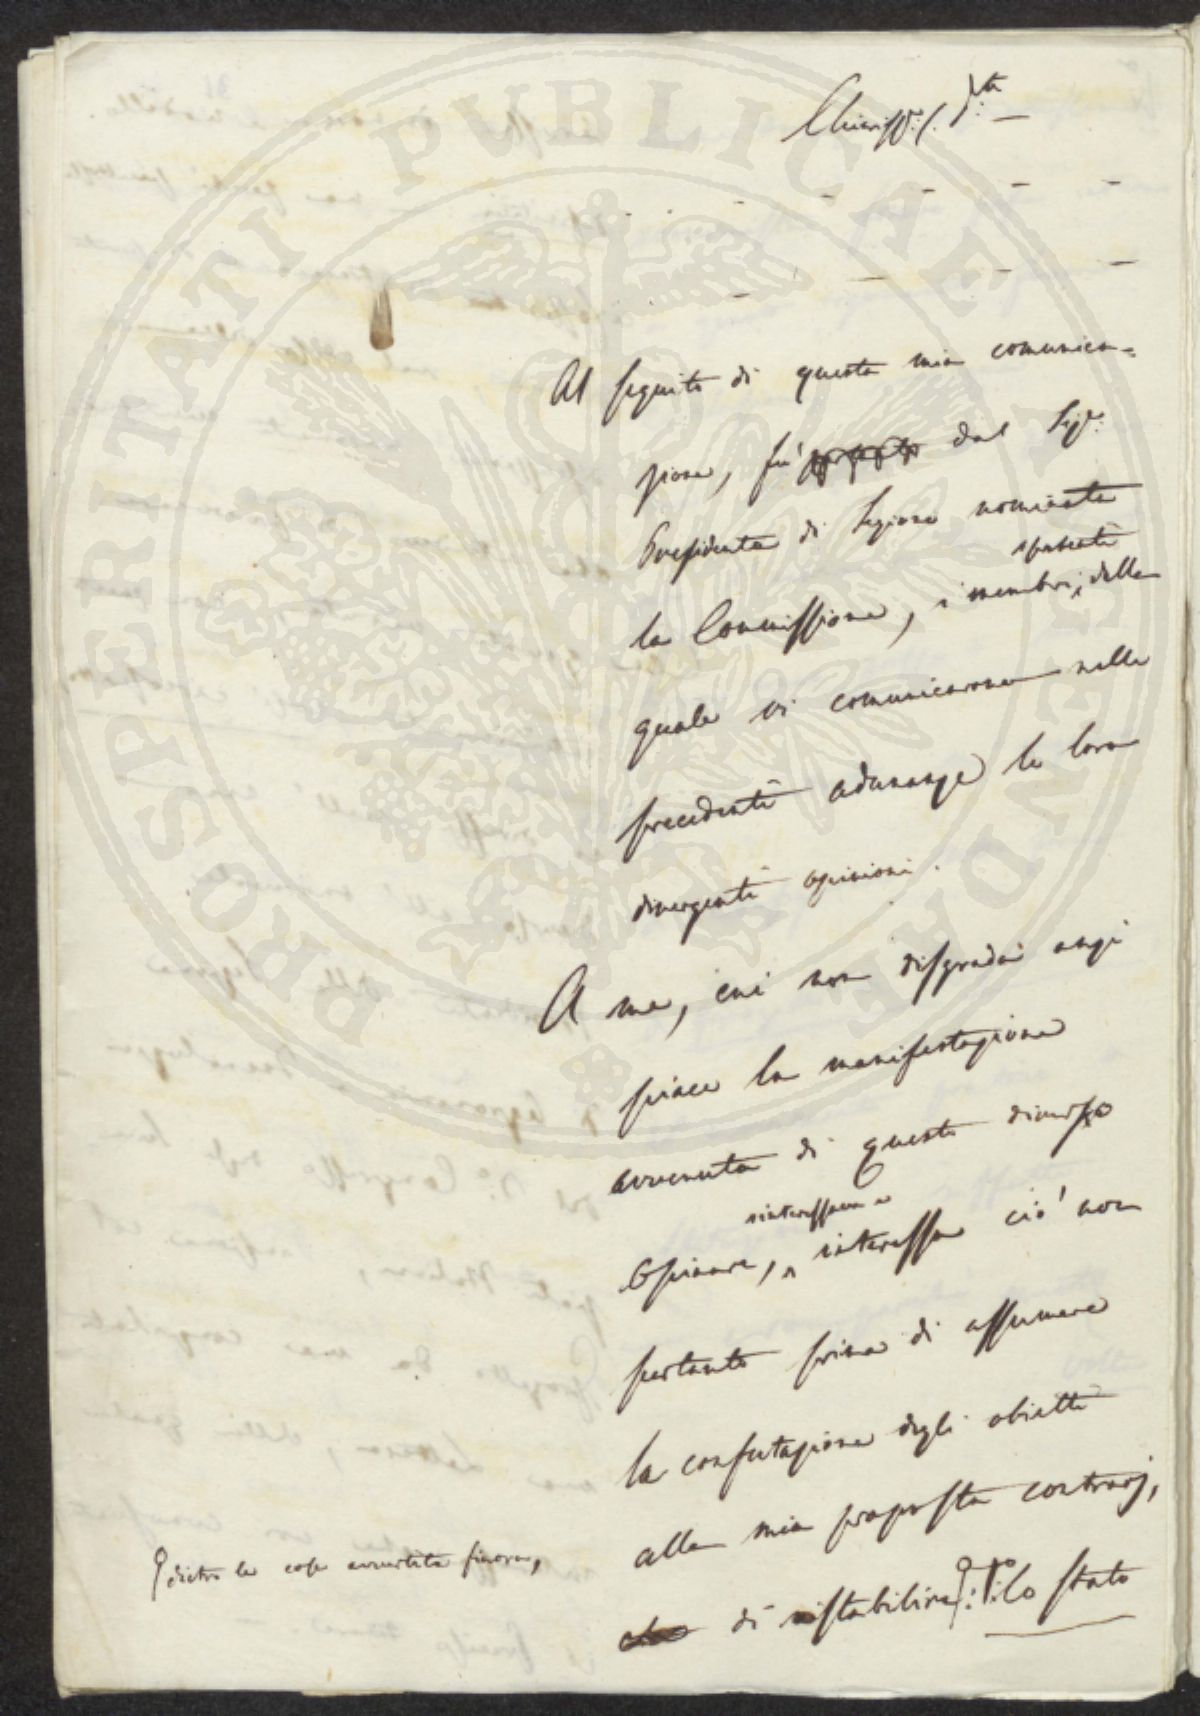 PROSPERITATI PUBLICAE AUGENDAE
Al seguito di questa mia comunica=
zione, fu dal Sigr.
Presidente di Sezione nominata
la Commissione, i membri, della
spettati
quale vi comunicarono nelle
precedenti adunanze le loro
divergenti opinioni.
A me, cui non disgrada anzi
piace la manifestazione
avvenuta di queste diverse
opinare, interessa ciò non
pertanto prima di assumere
la confutazione degli obietti
alla mia proposta contrarj,
di ristabilire: 1.o lo stato
dietro le cose avvertite finora,